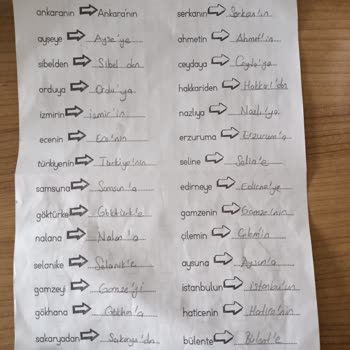 ankaranın ⇨ Ankara'nın
ayşeye ⇨ Ayşe'ye
sibelden ⇨ Sibel'den
orduya ⇨ Ordu'ya
izmirin ⇨ izmir'in
ecenin ⇨ Ece'nin
türkiyenin ⇨ Türkiye'nin
samsuna ⇨ Samsun'a
göktürke ⇨ Göktürk'e
nalana ⇨ Nalan'a
selanike ⇨ Selanik'e
gamzeyi ⇨ Gamze'yi
gökhana ⇨ Gökhan'a
sakaryadan ⇨ Sakarya'dan
serkanın ⇨ Serkan'ın
ahmetin ⇨ Ahmet'in
ceydaya ⇨ Ceyda'ya
hakkariden ⇨
nazlıya ⇨ Nazlı'ya
erzuruma ⇨ Erzurum'a
seline ⇨ Selin'e
edirneye ⇨ Edirne'ye
gamzenin ⇨ Gamze'nin
çilemin ⇨
aysuna ⇨ Aysun'a
istanbulun ⇨ istanbul'un
haticenin ⇨ Hatice'nin
bülente ⇨ Bülent'e